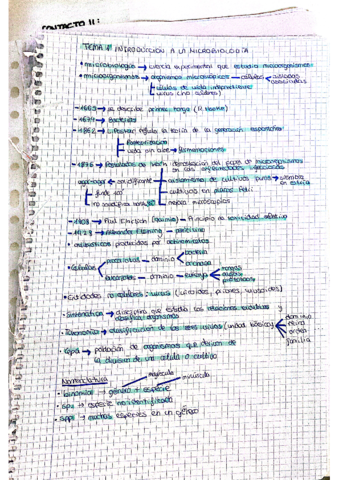 CONTACTO 11:
TEMA 1 INTRODUCCIÓN A LA MICROBIOLOGÍA
• microbiología → ciencia experimental que estudia microorganismos
• microorganismos → organismos microscópicos → células → aisladas
asociadas
células de vida independiente
virus (no células)
- 1665 → se describe primer hongo (R. Hooke)
- 1677 → Bacterias
- 1862 → L. Pasteur refuta la teoría de la generación espontánea
Pasteurización
vida sin aire → fermentaciones
- 1876 → Postulados de Koch: demostración del papel de microorganismos
en las enfermedades infecciosas
solidificante → aislamiento de cultivos puros → siembra
en estría
funde 100º
cultivos en placas Petri
no solidifica hasta
tinciones microscópicas
Paul Ehrlich (químico) → Principio de toxicidad selectiva
Alexander Fleming → penicilina
• antibióticos producidos por actinomicetos
• Células
procariotas → dominio
bacteria
archaea
eucariotas → dominio → eukarya
hongos
algas
protozoos
• Entidades no celulares: virus (viroides, priones, virusoides)
• Sistemática → disciplina que estudia las relaciones evolutivas
• Taxonomía → clasificación de los seres vivos (unidad básica)
dominio
reino
orden
familia
• Cepa → población de organismos que derivan de
la división de una célula o cultivo
Nomenclatura
mayúscula
minúscula
• binomial → género + especie
• sp. → especie no identificada
• spp. → muchas especies en un género